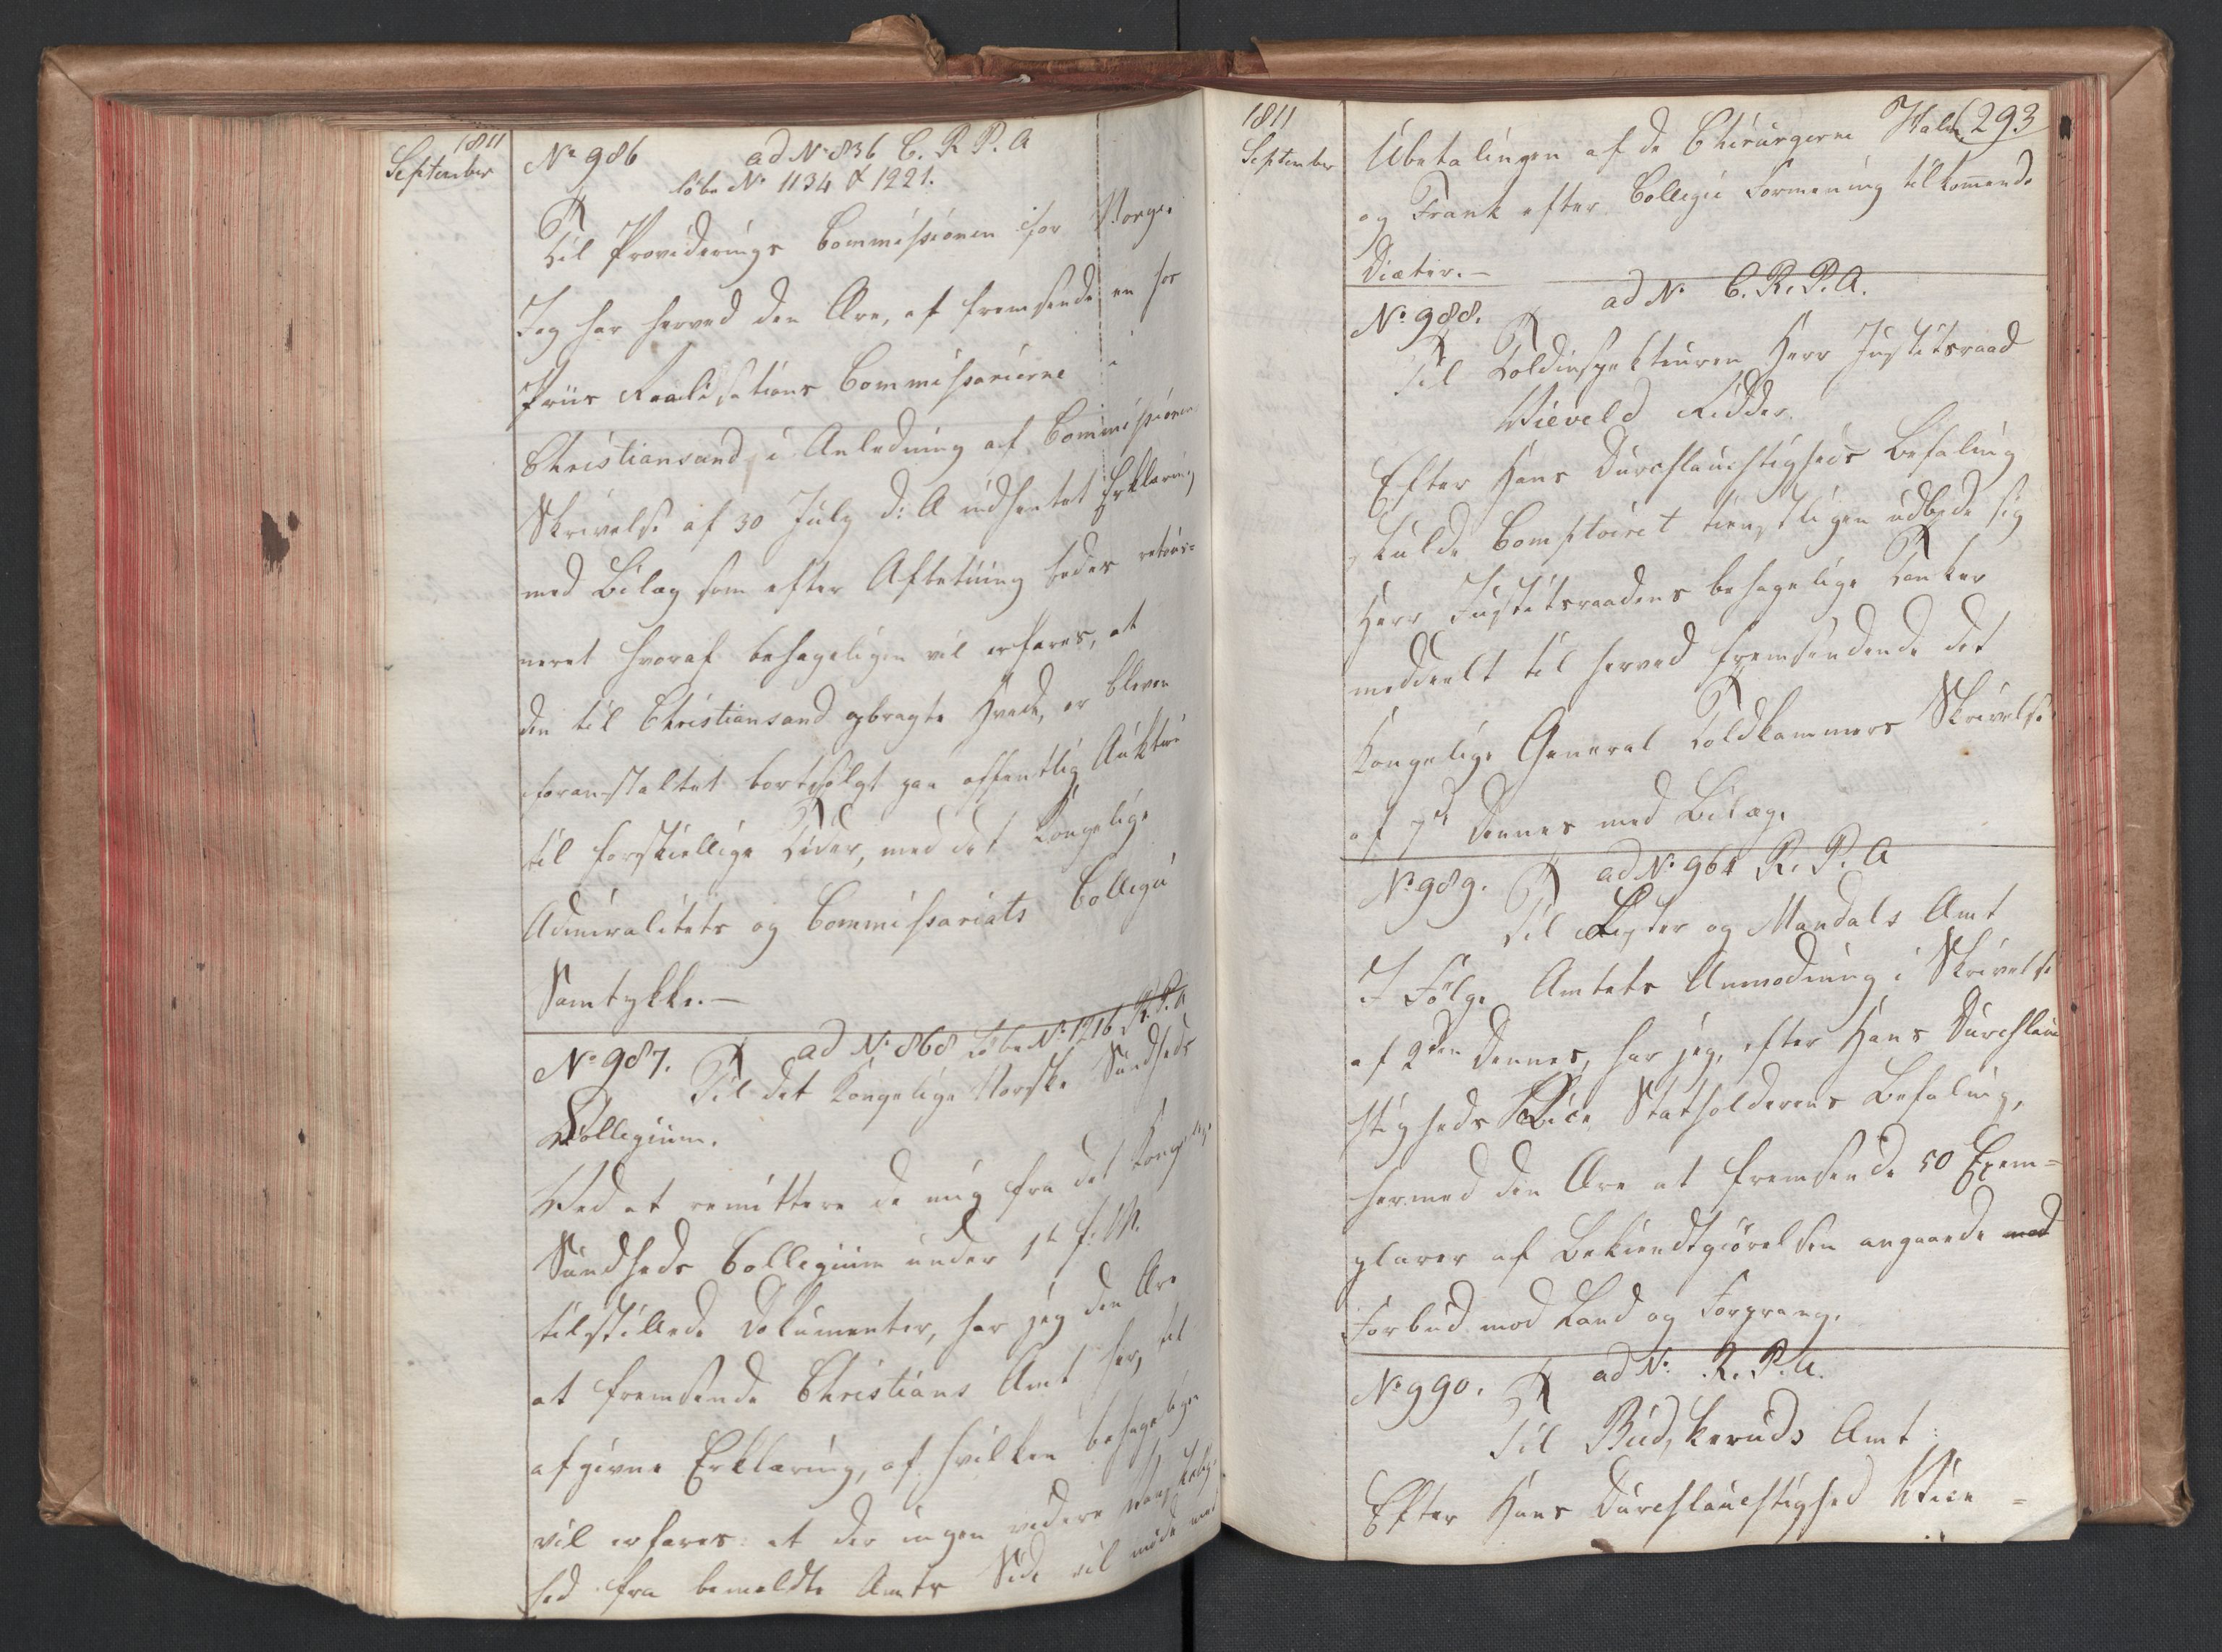 1811
September
No 986 ad No 836 C. R. P. A
löbe No 1134 & 1221.
Til Providerings Commissionen for Norge.
Jeg har herved den Ære, at fremsende en fra
Priis Realisations Commissarierne i
Christiansand i Anledning af Commissionens
Skrivelse af 30 July d: A indhentet Erklæring
med Bilag som efter Afbetning bedes retour=
neret hvoraf behageligen vil erfares, at
den til Christiansand opbragte Hvede, er bleven
foranstaltet bortsolgt paa offentlig Auktion
til forskiellige Tider, med det Kongelige
Admiralitets og Commissariats Collegii
Samtykke.—
No 987. ad No 868 Löbe No 1216 R. P. A
Til det Kongelige Norske Sundheds
Collegium.
Ved at remittere de mig fra det Kongelige
Sundheds Collegium under 1te f. M.
tilstillede Dokumenter, har jeg den Ære
at fremsende Christians Amt her, til
afgivne Erklæring, af hvilken behageligen
vil erfares: at der ingen videre
hed fra bemeldte Amts Side vil møde med
1811
September
293
Ubetalingen af de Chirurgerne Halm
og Frank efter Collegii Formening tilkommende
Diæter.—
No 988. ad No C. R. P. A.
Til Toldinspekteuren Herr Justitsraad
Wieveld Ridder.
Efter Hans Durchlauchtigheds Befaling
skulde Comptoiret tienstligen udbede sig
Herr Justitsraadens behagelige Tanker
meddeelt til herved fremsendende det
Kongelige General Toldkammers Skrivelse
af 7de dennes med Bilag.
No 989. ad No 964 R. P. A
Til Lister og Mandals Amt
I Følge Amtets Anmodning i Skrivelse
af 2den dennes, har jeg, efter Hans Durchlauch
tigheds Vice Statholderens Befaling,
hermed den Ære at fremsende 50 Exem=
plarer af Bekiendtgiørelsen angaaende med
Forbud mod Land og Forprang.
No 990. ad No. R. P. A.
Til Buskeruds Amt
Efter Hans Durchlauchtighed Vice=